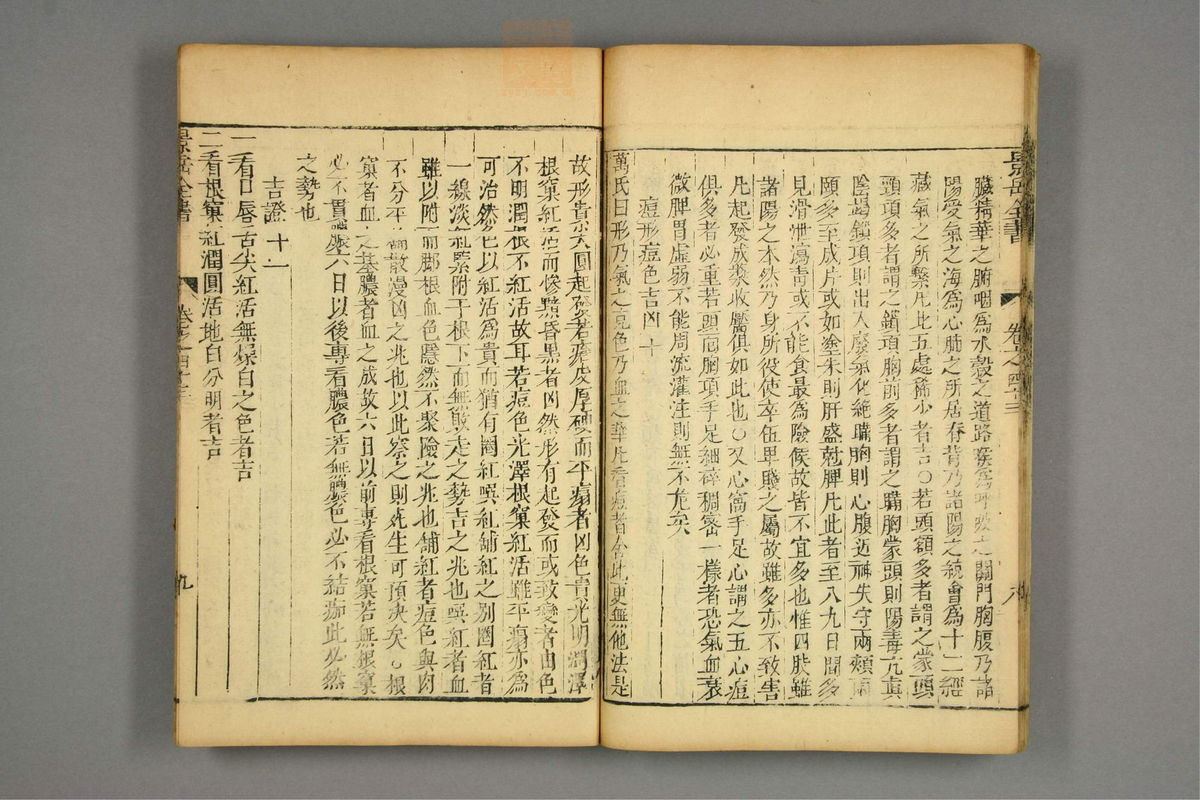 景岳全書 卷之四十三 八
臟精華之腑咽為水穀之道路喉為呼吸之關門胸腹乃諸
陽受氣之海為心肺之所居存背乃諸陽之統會為十二經
臟氣之所繫凡此五處稀少者吉○若頭額多者謂之蒙頭
頸項多者謂之鎖項胸前多者謂之瞞胸蒙頭則陽毒亢甚
陰竭鎖項則出入廢氣化絕瞞胸則心腹近神失守兩頰兩
頤多至成片或如塗朱則肝盛尅脾凡此者至八九日間多
見滑泄瀉青或不能食最為險候故皆不宜多也惟四肢雖
諸陽之本然乃身所役使卒伍卑賤之屬故雖多亦不致害
凡起發成漿收靨俱如此也○又心窩手足心謂之五心痘
俱多者必重若頭面胸項手足細碎稠密一樣者恐氣血衰
微脾胃虛弱不能周流灌注則無不危矣
痘形痘色吉凶十
萬氏曰形乃氣之充色乃血之華凡看痘者舍此更無他法是
故形貴尖圓起發若瘡皮厚硬而平塌者凶色貴光明潤澤
根窠紅活而慘黯昏黑者凶然形有起發而或致變者由色
不明潤根不紅活故耳若痘色光澤根窠紅活雖平塌亦為
可治然色以紅活為貴而猶有圈紅噀紅舖紅之別圈紅者
一線淡紅緊附于根下而無散走之勢吉之兆也噀紅者血
雖以附而脚根血色隱然不聚險之兆也舖紅者痘色與肉
不分平舖散漫凶之兆也以此察之則死生可預決矣○根
窠者血之基膿者血之成故六日以前專看根窠若無根窠
必不貫膿六日以後專看膿色若無膿色必不結痂此必然
之勢也
吉證十一
一看口唇舌尖紅活無燥白之色者吉
二看根窠紅潤圓活地白分明者吉
景岳全書 卷之四十三 九